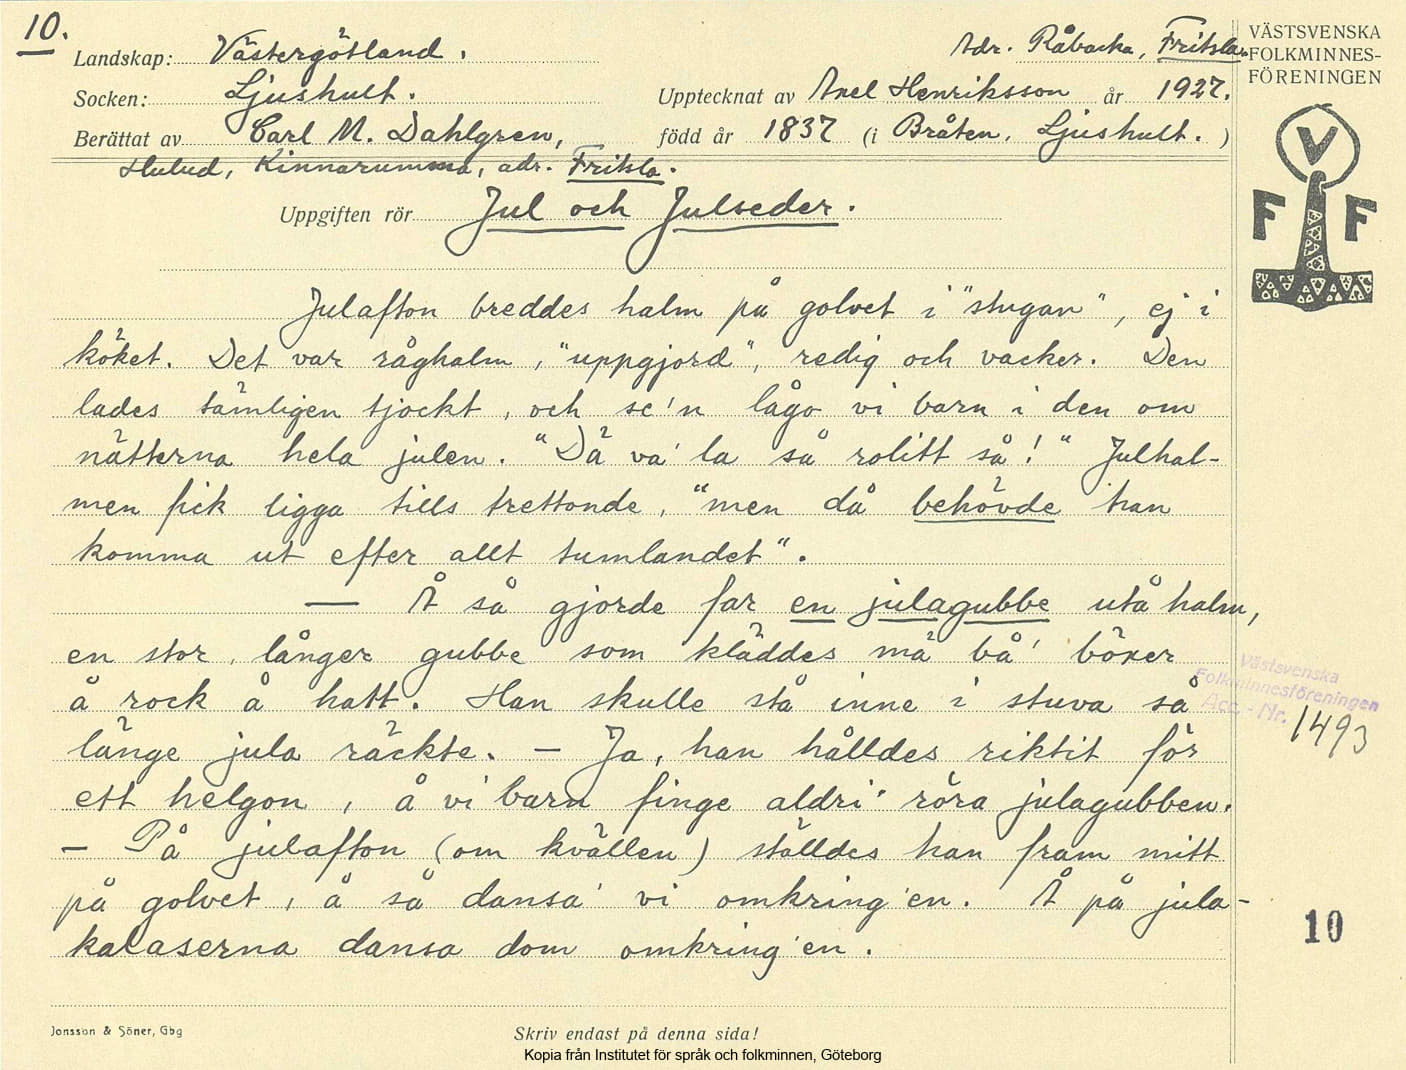 10.
Landskap: Västergötland. Adr. Råbacka, Fritsla.
Socken: Ljushult. Upptecknat av Axel Henriksson år 1927.
Berättat av Carl M. Dahlgren, född år 1837 (i Bråten, Ljushult.)
Hulud, Kinnarumma, adr. Fritsla.
VÄSTSVENSKA
FOLKMINNES-
FÖRENINGEN
V
F F
Uppgiften rör Jul och Julseder.
Julafton breddes halm på golvet i "stugan", ej i
köket. Det var råghalm, "uppgjord", redig och vacker. Den
lades tämligen tjockt, och se'n lågo vi barn i den om
nätterna hela julen. "Dä va' la så rolitt så!" Julhal-
men fick ligga tills trettonde, "men då behövde han
komma ut efter allt tumlandet".
— Å så gjorde far en julagubbe utå halm,
en stor, långer gubbe som kläddes mä bå' böxer
å rock å hatt. Han skulle stå inne i stuva så
länge jula räckte. – Ja, han hålldes riktit för
ett helgon, å vi barn finge aldri' röra julagubben.
– På julafton (om kvällen) ställdes han fram mitt
på golvet, å så dansa' vi omkring'en. Å på jula-
kalaserna dansa dom omkring'en.
Västsvenska
Folkminnesföreningen
Acc.-Nr. 1493
10
Jonsson & Söner, Gbg
Skriv endast på denna sida!
Kopia från Institutet för språk och folkminnen, Göteborg